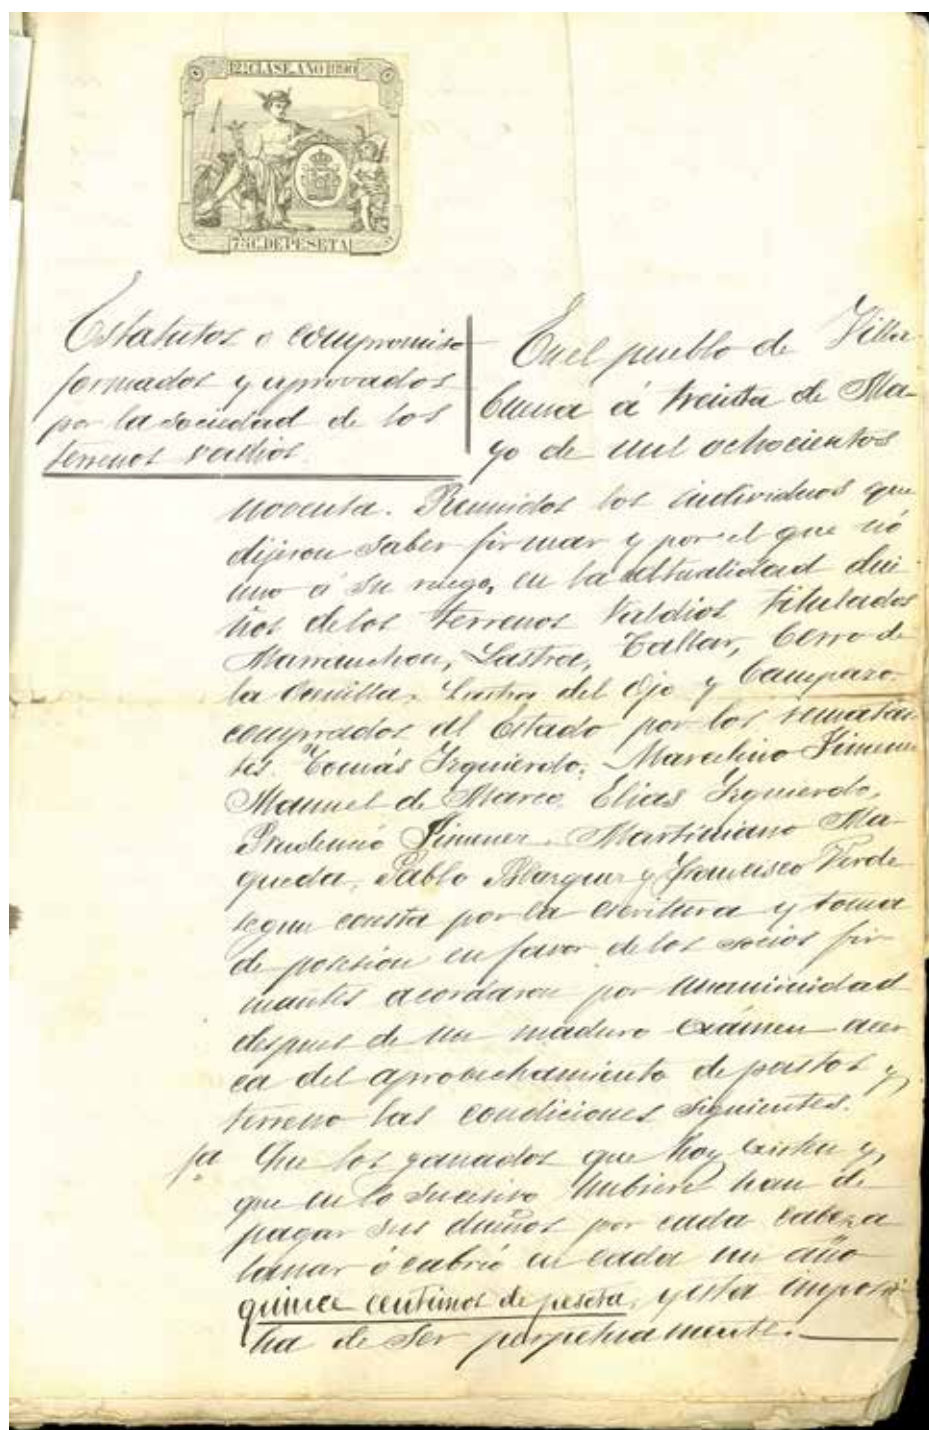 12ª CLASE. AÑO 1890
75 C. DE PESETA
Estatutos o compromiso
formados y aprovados
por la sociedad de los
terrenos valdios.
En el pueblo de Villa
buena á treinta de Ma-
yo de mil ochocientos
noventa. Reunidos los individuos que
dijeron saber firmar y por el que nó
uno á su ruego, en la actualidad due-
ños de los terrenos Valdios titulados
Maranchon, Lastra, Tallar, Cerro de
la Lastra del Ojo y Campazo
comprados al Estado por los rematan
tes. Tomás Izquierdo, Marcelino Jimenez
Manuel de Marco, Elias Izquierdo,
Prudencio Jimenez, Martiniano Ma-
queda, Pablo Blazquez y Francisco Verde
segun consta por la escritura y toma
de posesion en favor de los socios fir
mantes acordaron por unanimidad
despues de un maduro exámen acer
ca del aprovechamiento de pastos y
terreno las condiciones siguientes.
1ª Que los ganados que hoy existen y
que en lo sucesivo hubiere han de
pagar sus dueños por cada cabeza
lanar ó cabrio en cada un año
quince centimos de peseta, y esta
ha de ser perpetuamente.